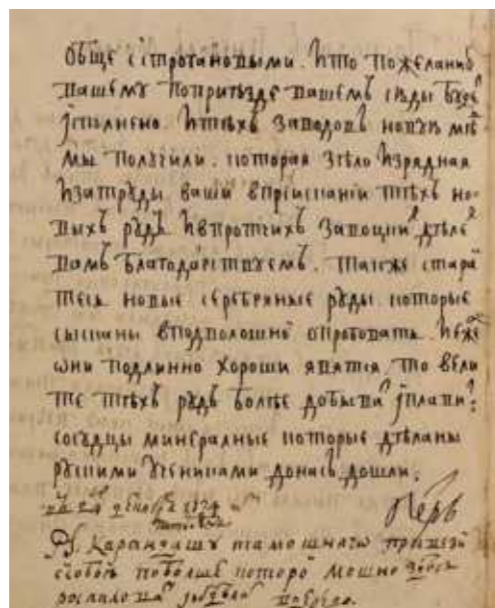 обще с строгановыми. и то по желанию
вашему по приѣзде вашемъ сюды буде
ісполнено. и тѣхъ заводовъ новую мѣ
мы получили. которая зѣло изрядная
и за труды ваши в преисканіи тѣхъ но-
выхъ рудъ и в протчихъ заводцкихъ дѣлех
вамъ благодарствуемъ. также стара
тесь новые серебряные руды которые
сысканы в подволошно опробовать. и еже
они подлинно хороши явятся. то вели
те тѣхъ рудъ болѣе добыва і плави:
сосудцы минералные которые дѣланы
рускими учениками до насъ дошли.
Петръ
P.S. Карандашу тамошнаго привези
с собою поболше которо можно здесь